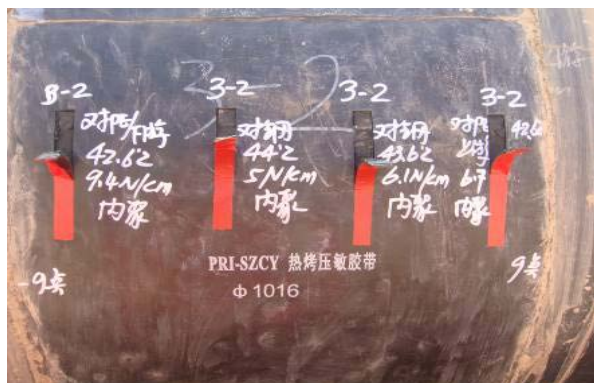 3-2
3-2
对PE/下游
42.6℃
9.4N/cm
内聚
3-2
对钢
44℃
5N/cm
内聚
3-2
对钢
43.6℃
6.1N/cm
内聚
3-2
对PE
42.6
6.7
内聚
PRI-SZCY 热烤压敏胶带
Φ1016
9点
9点